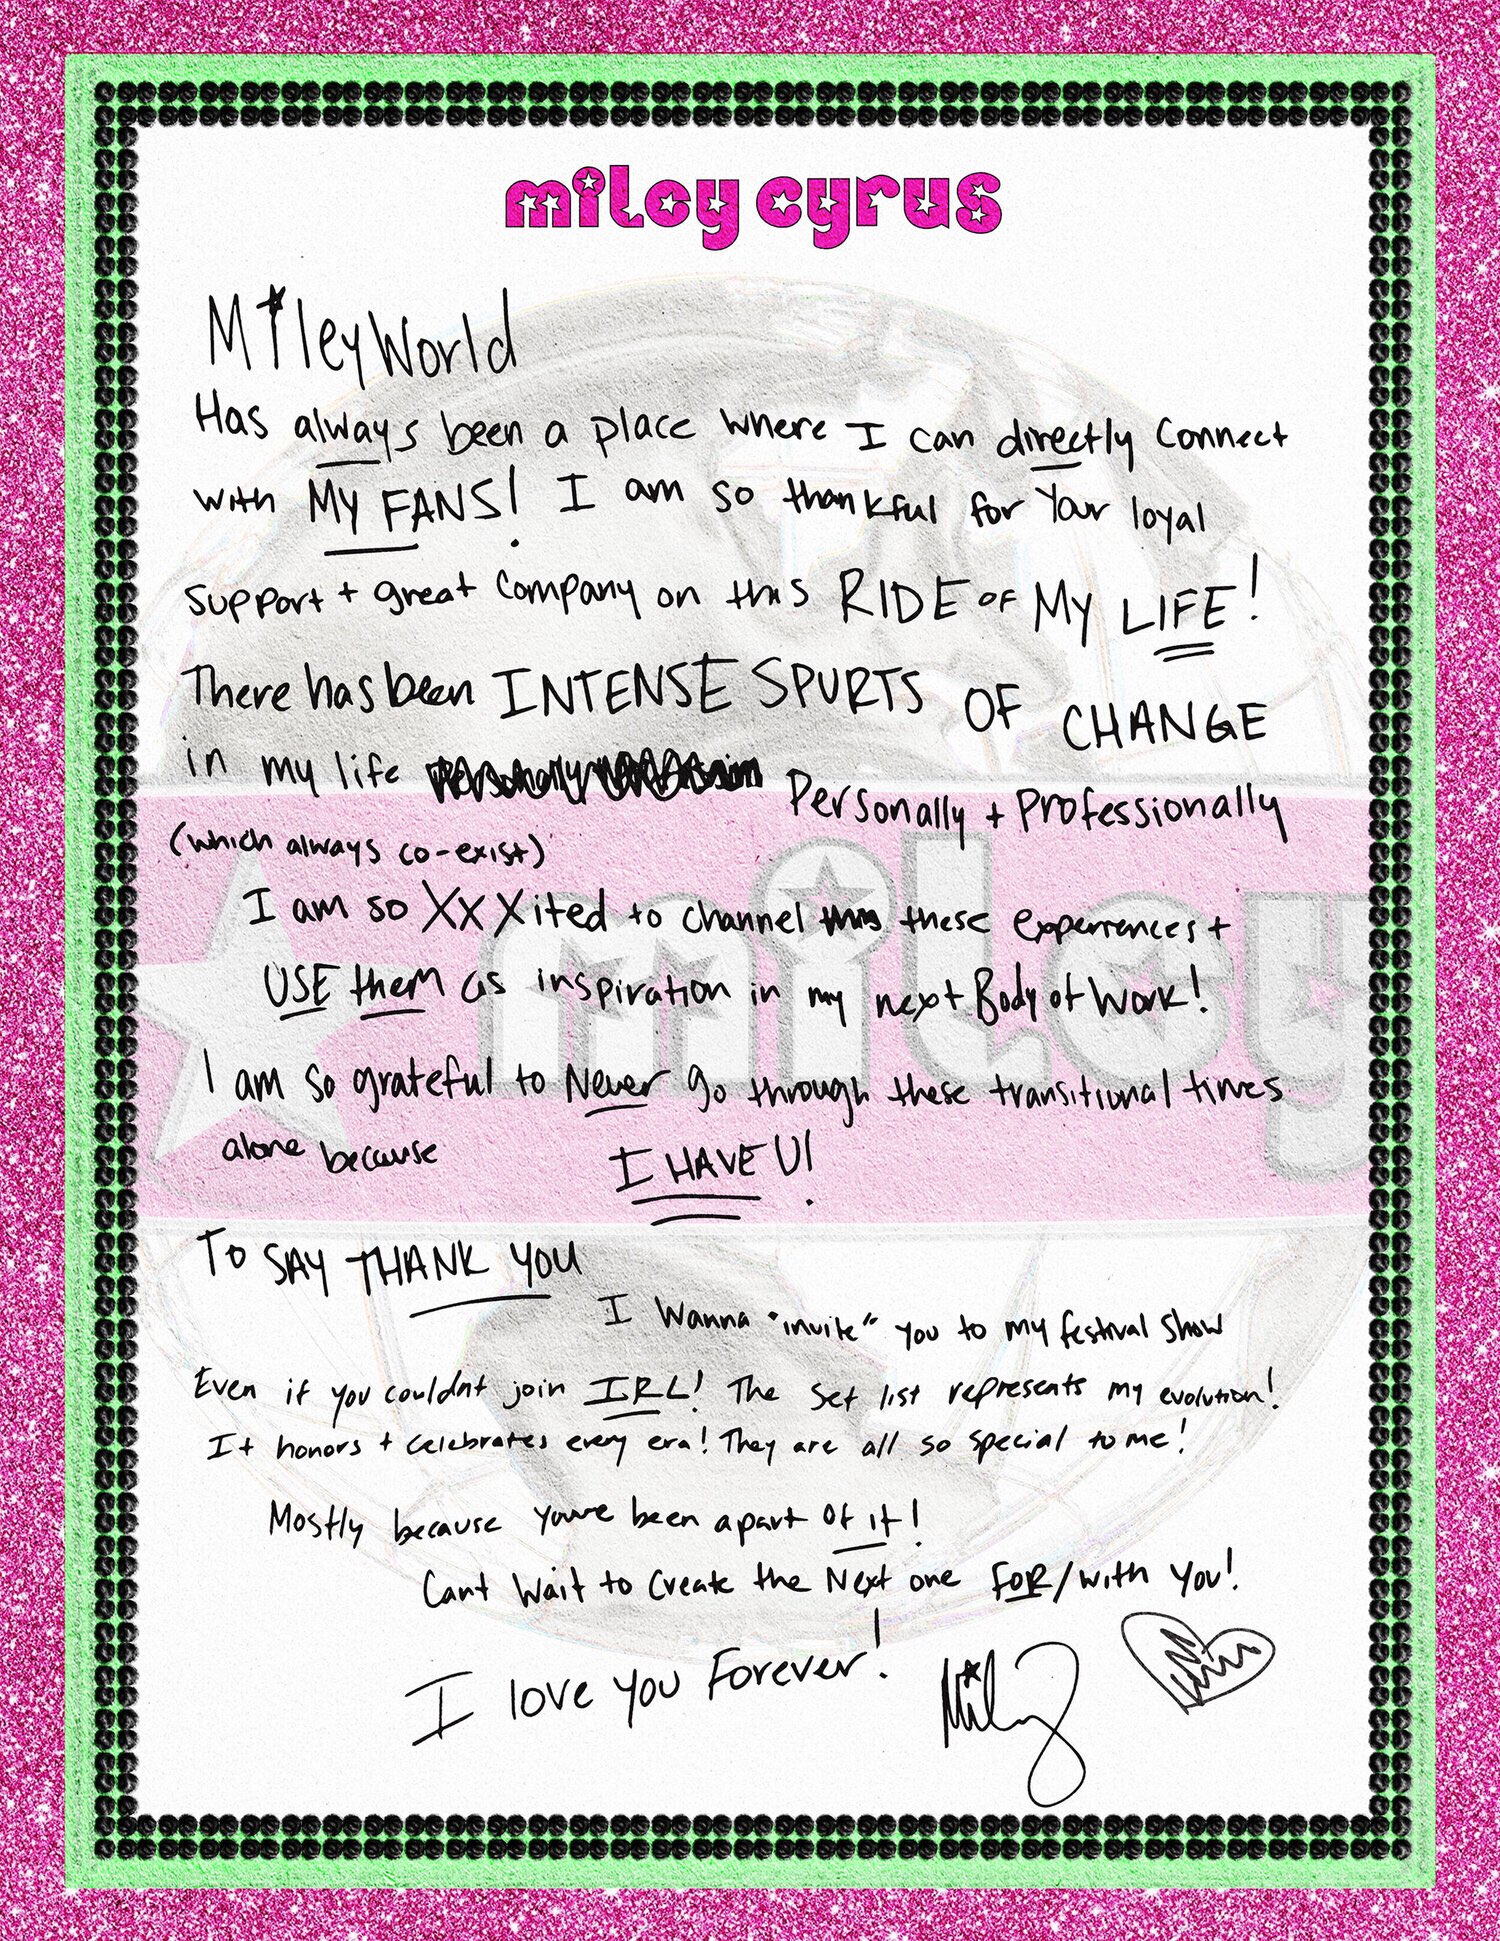 miley cyrus
MileyWorld
Has always been a place where I can directly connect
with MY FANS! I am so thankful for Your loyal
support + great company on this RIDE OF MY LIFE!
There has been INTENSE SPURTS OF CHANGE
in my life Personally + Professionally
(which always co-exist)
I am so XXXited to channel this these experiences +
USE them as inspiration in my next Body of Work!
I am so grateful to Never go through these transitional times
alone because I HAVE U!
To SAY THANK YOU
I Wanna "invite" you to my festival Show
Even if you couldnt join IRL! The set list represents my evolution!
It honors + celebrates every era! They are all so special to me!
Mostly because youve been apart of it!
Cant Wait to Create the Next one FOR/with You!
I love you Forever! Miley
miley